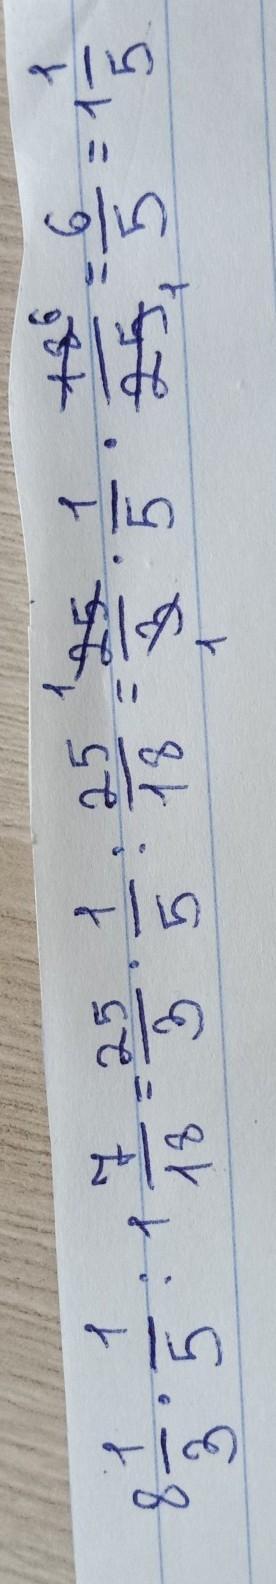 8 1/3 · 1/5 : 1 7/18 = 25/3 · 1/5 : 25/18 = 25/3 · 1/5 · 18/25 = 6/5 = 1 1/5